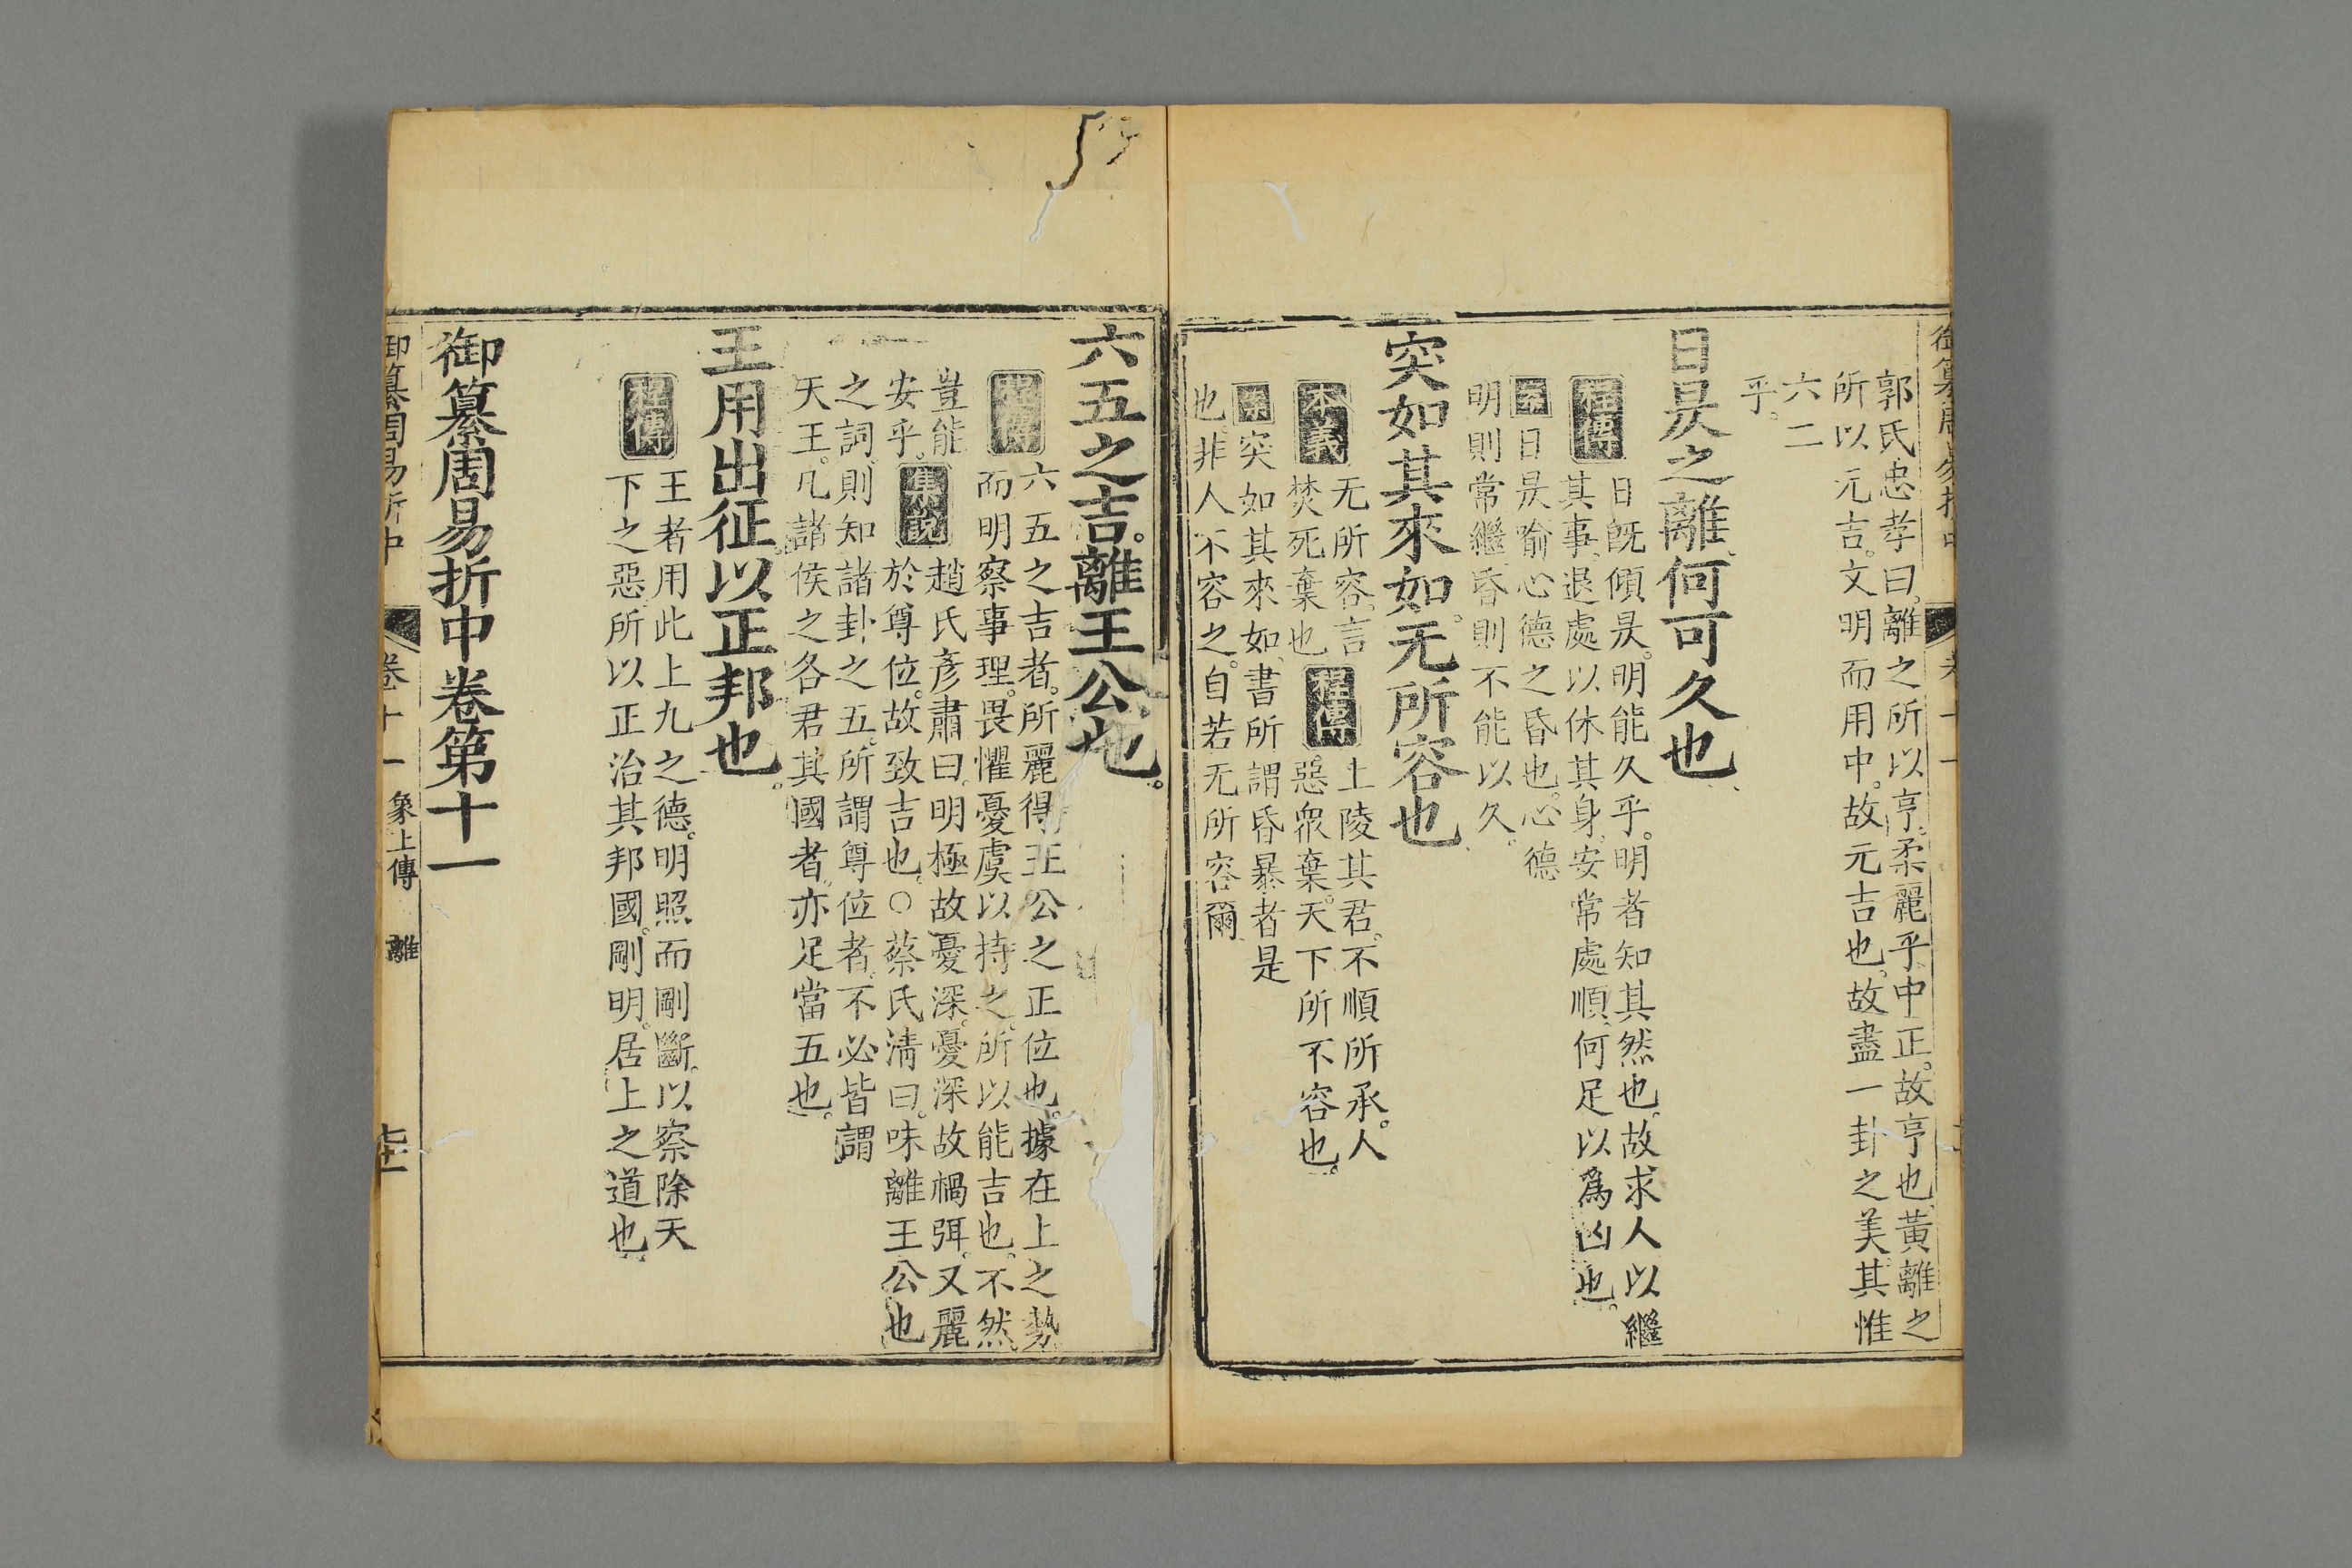 郭氏忠孝曰。離之所以亨。柔麗乎中正。故亨也。黃離之
所以元吉。文明而用中。故元吉也。故盡一卦之美。其惟
六二
乎。
日昃之離。何可久也。
程傳 日既傾昃。明能久乎。明者知其然也。故求人以繼
其事。退處以休其身。安常處順。何足以為凶也。
案 日昃喻心德之昏也。心德
明則常繼。昏則不能以久。
突如其來如。无所容也。
本義 无所容。言
焚死棄也 程傳 上陵其君。不順所承。人
惡眾棄。天下所不容也。
案 突如其來如。書所謂昏暴者是
也。非人不容之。自若无所容爾。
六五之吉。離王公也。
程傳 六五之吉者。所麗得王公之正位也。據在上之勢
而明察事理。畏懼憂虞以持之。所以能吉也。不然
豈能
安乎。 集說 趙氏彥肅曰。明極故憂深。憂深故禍弭。又麗
於尊位。故致吉也。○蔡氏清曰。味離王公也
之詞。則知諸卦之五。所謂尊位者。不必皆謂
天王。凡諸侯之各君其國者。亦足當五也。
王用出征。以正邦也。
程傳 王者用此上九之德。明照而剛斷。以察除天
下之惡。所以正治其邦國。剛明。居上之道也。
御纂周易折中卷第十一
御纂周易折中 卷十一 象上傳 離